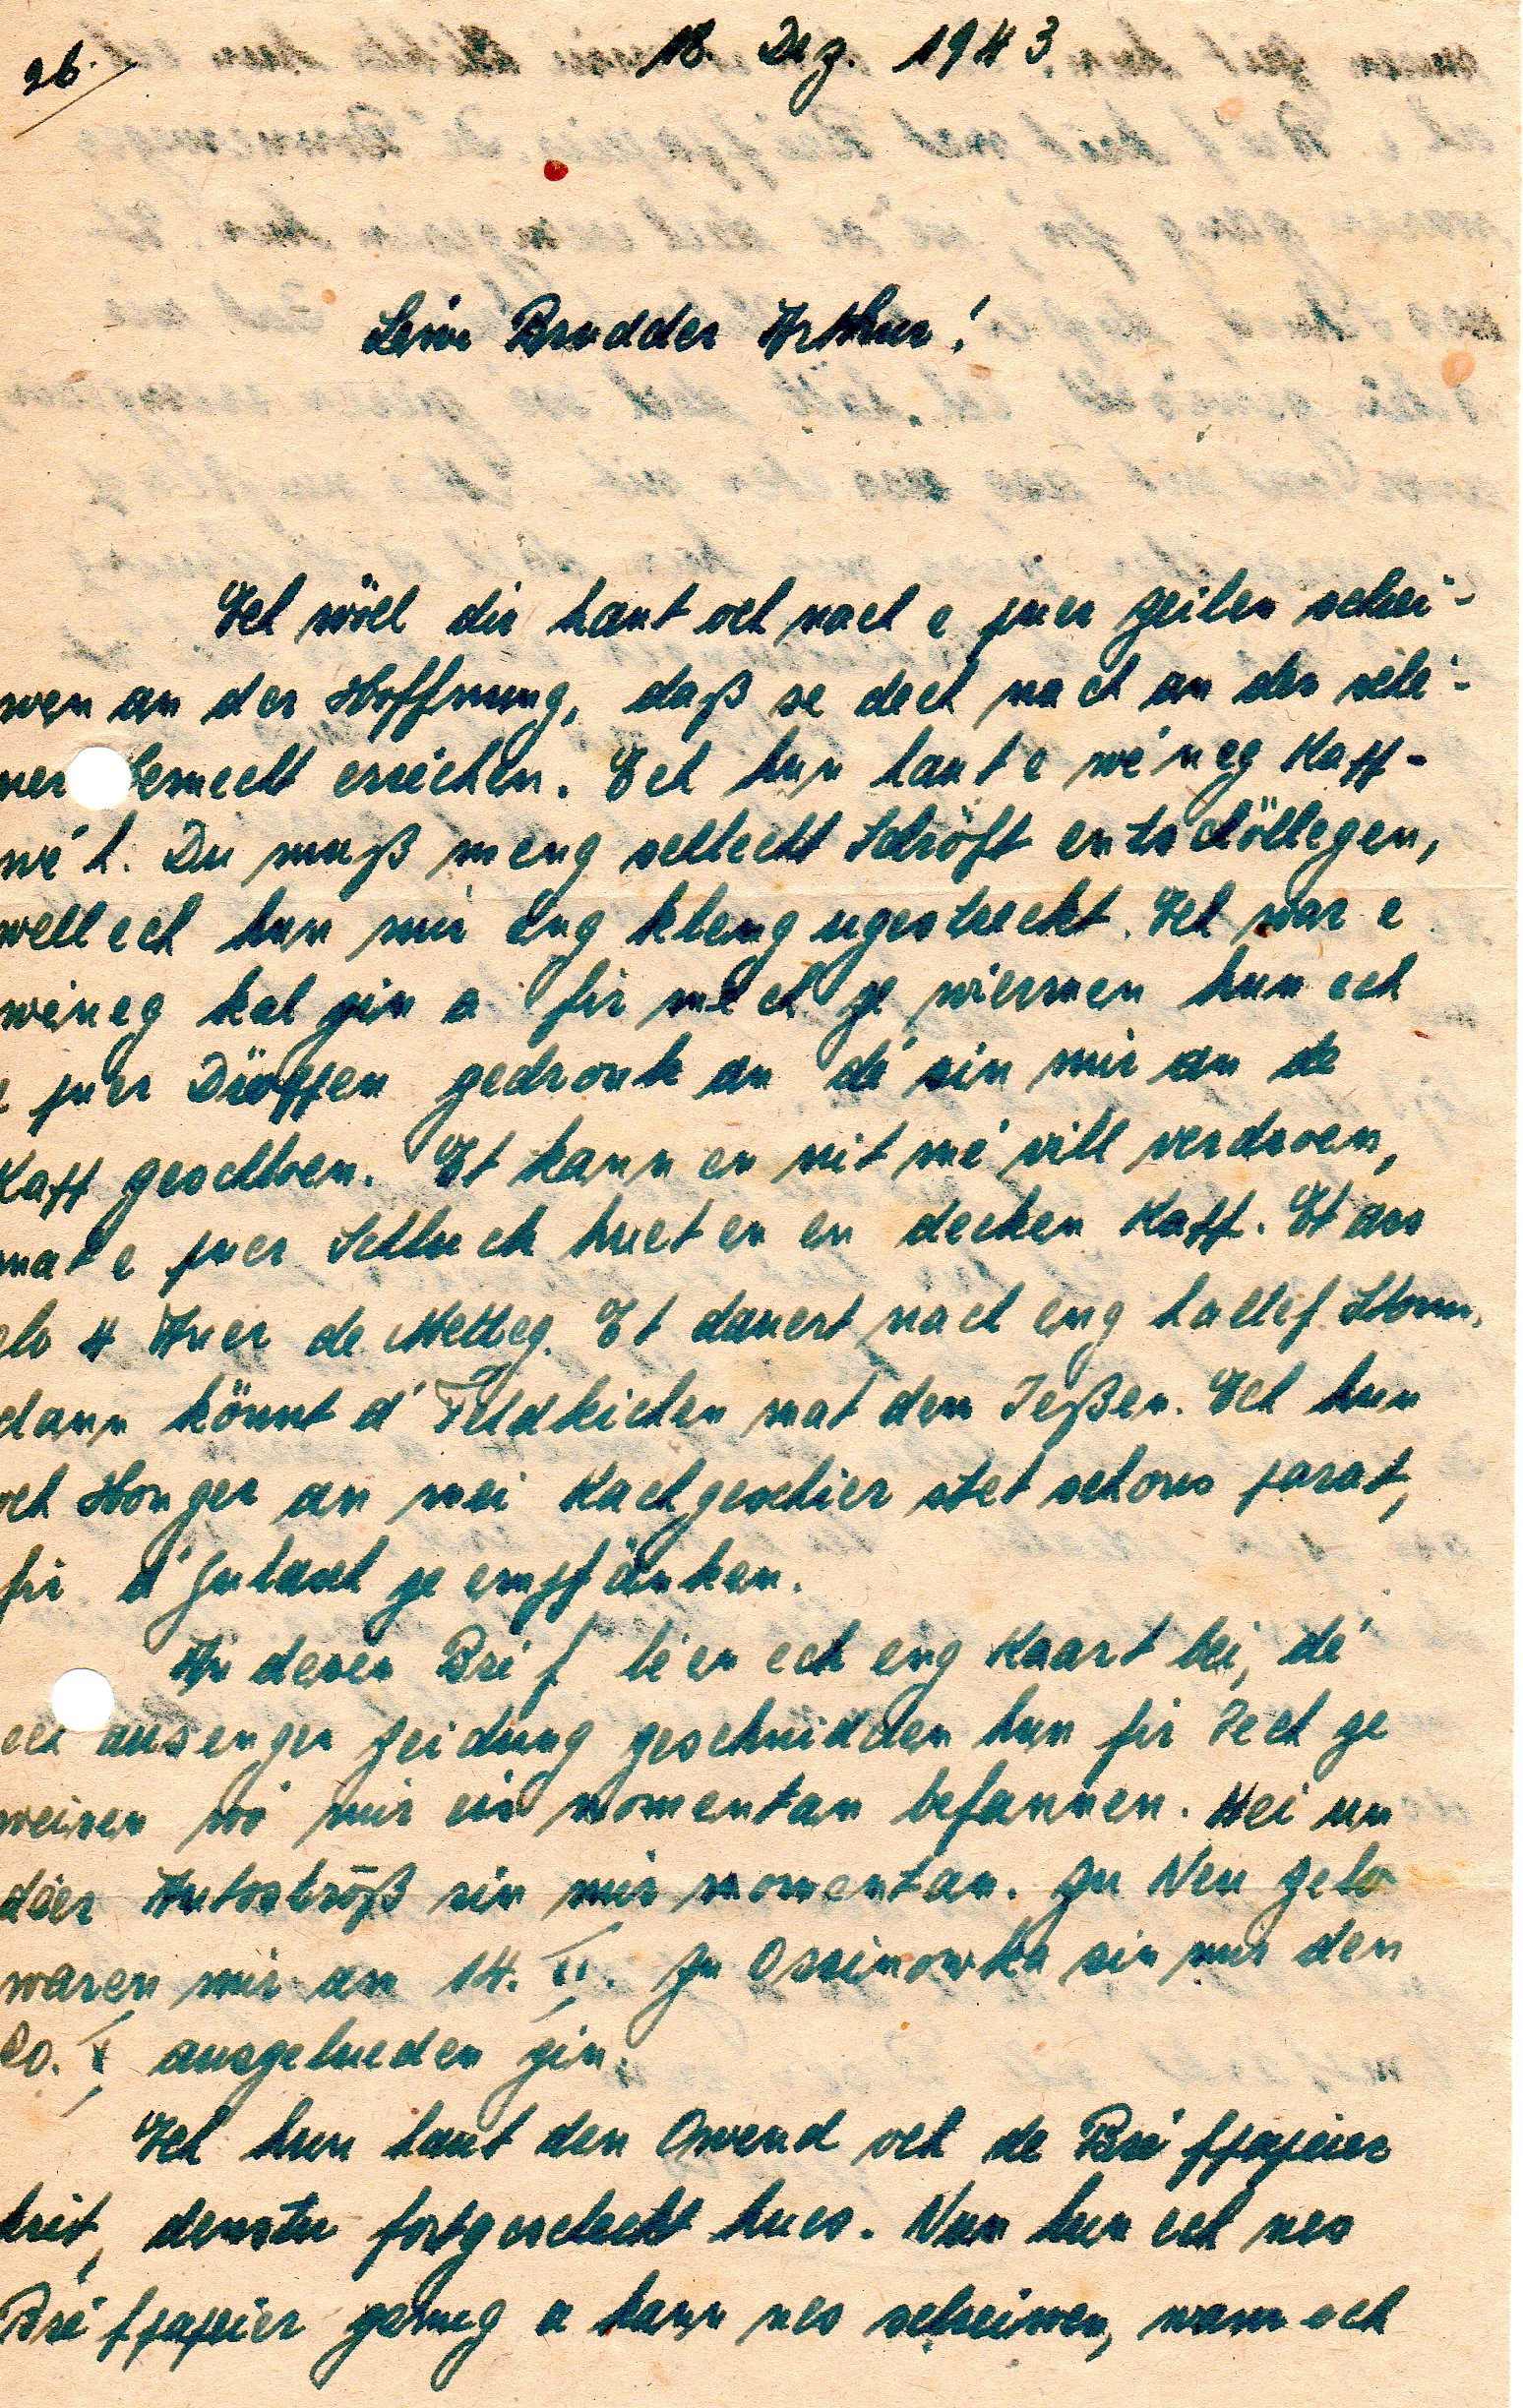 26.
18. Dez. 1943
Léiwe Brudder Arthur!
Ech wëll dir haut och nach e puer Zeilen schrei-
wen an der Hoffnung, daß se dech nach an der
erreichen. Ech hun haut e wéneg Kapp-
wé h. Du muß meng schlecht Schröft entschöllegen,
well ech hun mir eng kleng ugestreckt. Ech war e
wéineg kal gin a fir mech ze wiermen hun ech
e puer Dröppen gedronk an dé sin mir an de
Kapp geschloen. Et kann en nit mé vill verdroen,
mat e puer Schluck huet en en decken Kapp. Et ass
elo 4 Auer de Metteg. Et dauert nach eng hallef Stonn,
dann könnt d' Feldkichen mat dem Ießen. Ech hun
och Honger an mei Kachgeschier stet schons parat,
fir d' Gulasch ze empfänken.
An desen Bréif léen ech eng Kaart bei, dé
ech aus enger Zeidung geschnidden hun fir Iech ze
weisen wó mir eis momentan befannen. Hei un
dëer Autostróß sin mir momentan. Zu Neu Zelo
waren mir am 14. II. Zu Ossinowka sin mir den
20. X ausgelueden gin.
Ech hun haut den Owend och de Bréifpapeier
krit, denstu fortgeschéckt hues. Nun hun ech nes
Bréifpapeier genug a kann nes schreiwen, wann ech